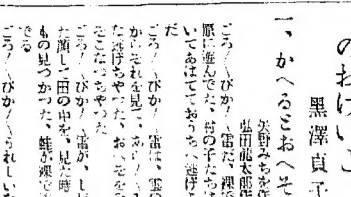 のおけいこ
黒澤貞子
一、かへるとおへそ
矢野みち を作
弘田龍太郎作
ごろ〱ぴか〱雷だ、裸で
原に遊んでた、村の子たちは
いてあはてゝおうちへ逃げ
だ
ごろ〱ぴか〱雷は、雲の
からそれを見て、
た逃げちやつた、おへそを
そこなつちやつた
ごろ〱ぴか〱雷が、し
た顔して田の中を、見た時
もの見つかつた、蛙が裸で
でる
ごろ〱ぴか〱うれしいな